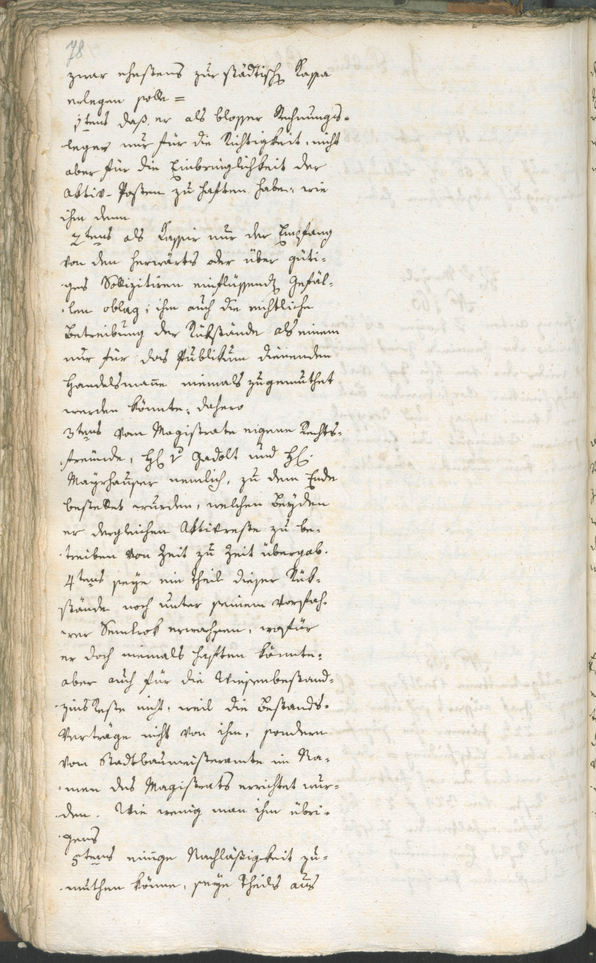 78
zwar ehestens zur städtisch Kassa
erlegen solle =
1tens daß er als blosser Rechnungs-
leger nur für die Richtigkeit, nicht
aber für die Einbringlichkeit der
Aktiv-Posten zu haften habe, wie
ihm denn
2tens als Kassier nur der Empfang
von den herwärts oder über güti-
ges Sollizitiren einfliessend Gefäl-
len oblag, ihm auch die rechtliche
Betreibung der Rükstände als einem
nur für das Publikum dienenden
Handelsmanne niemals zugemuthet
werden könnte, dahero
3tens vom Magistrate eigene Rechts-
freunde, H Gadolt und H
Mayrhauser nemlich, zu dem Ende
bestellet wurden, welchen Beyden
er dergleichen Aktivreste zu be-
treiben von Zeit zu Zeit übergab.
4tens seye ein Theil dieser Rük-
stände noch unter seinem Vorfah-
rer erwachsen, wofür
er doch niemals haften könnte,
aber auch für die Wiesenbestand-
zins Reste nicht, weil die Bestands-
Verträge nicht von ihm, sondern
vom Stadtbaumeisteramte im Na-
men des Magistrats errichtet wur-
den. Wie wenig man ihm übri-
gens
5tens einige Nachläßigkeit zu-
muthen könne, seye theils aus